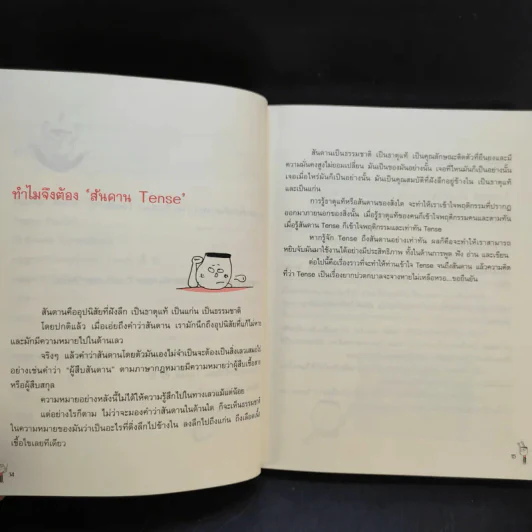 ทำไมจึงต้อง "สันดาน Tense"
สันดานคืออุปนิสัยที่ฝังลึก เป็นธาตุแท้ เป็นแก่น เป็นธรรมชาติ
โดยปกติแล้ว เมื่อเอ่ยถึงคำว่าสันดาน เรามักนึกถึงอุปนิสัยที่แก้ไม่หาย
และมักมีความหมายไปในด้านเลว
จริงๆ แล้วคำว่าสันดานโดยตัวมันเองไม่จำเป็นจะต้องเป็นสิ่งเลวเสมอไป
อย่างเช่นคำว่า "ผู้สืบสันดาน" ตามภาษากฎหมายมีความหมายว่าผู้สืบเชื้อสาย
หรือผู้สืบสกุล
ความหมายอย่างหลังนี้ไม่ได้ให้ความรู้สึกไปในทางเลวแม้แต่น้อย
แต่อย่างไรก็ตาม ไม่ว่าจะมองคำว่าสันดานในด้านใด ก็จะเห็นธรรมชาติ
ในความหมายของมันว่าเป็นอะไรที่ดิ่งลึกไปข้างใน ลงลึกไปถึงแก่น ถึงเลือดเนื้อ
เชื้อไขเลยทีเดียว
14
สันดานเป็นธรรมชาติ เป็นธาตุแท้ เป็นคุณลักษณะติดตัวที่ยืนยงและมี
ความมั่นคงสูงไม่ยอมเปลี่ยน มันเป็นของมันอย่างนั้น เจอที่ไหนมันก็เป็นอย่างนั้น
เจอเมื่อไหร่มันก็เป็นอย่างนั้น มันเป็นคุณสมบัติที่ฝังลึกอยู่ข้างใน เป็นธาตุแท้
และเป็นแก่น
การรู้ธาตุแท้หรือสันดานของสิ่งใด จะทำให้เราเข้าใจพฤติกรรมที่ปรากฏ
ออกมาภายนอกของสิ่งนั้น เมื่อรู้ธาตุแท้ของคนก็เข้าใจพฤติกรรมคนและตามทัน
เมื่อรู้สันดาน Tense ก็เข้าใจพฤติกรรมและเท่าทัน Tense
หากรู้จัก Tense ถึงสันดานอย่างเท่าทัน ผลก็คือจะทำให้เราสามารถ
หยิบจับมันมาใช้งานได้อย่างมีประสิทธิภาพ ทั้งในด้านการพูด ฟัง อ่าน และเขียน
ต่อไปนี้คือเรื่องราวที่จะทำให้ท่านเข้าใจ Tense จนถึงสันดาน แล้วความคิด
ที่ว่า Tense เป็นเรื่องยากปวดกบาลจะจางหายไปเหลือหรอ...ขอยืนยัน